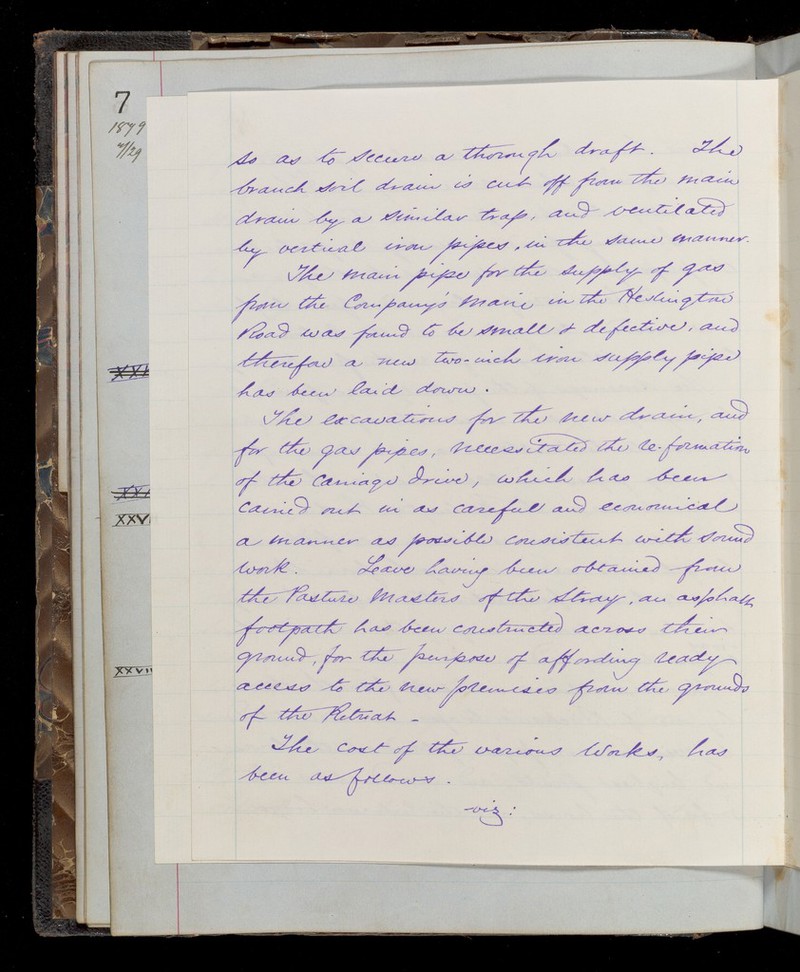 7
1879
4/29
so as to secure a thorough draft. The
branch soil drain is cut off from the main
drain by a similar trap, and ventilated
by vertical iron pipes, in the same manner.
The main pipe for the supply of gas
from the Company's Main in the Heslington
Road was found to be small & defective, and
therefore a new two-inch iron supply pipe
has been laid down.
The excavations for the new drain, and
for the gas pipes, necessitated the re-formation
of the Carriage Drive, which has been
carried out in as careful and economical
a manner as possible consistent with sound
work. Leave having been obtained from
the Pasture Masters of the Stray, an asphalt
footpath has been constructed across their
ground, for the purpose of affording ready
access to the new premises from the grounds
of the Retreat -
The cost of the various Works, has
been as follows.
viz:
XXV
XXVII